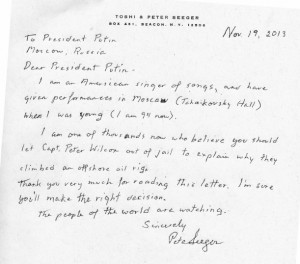 TOSHI & PETER SEEGER
BOX 431, BEACON, N.Y. 12508
Nov 19, 2013
To President Putin
Moscow, Russia
Dear President Putin.
I am an American singer of songs, and have
given performances in Moscow (Tchaikovsky Hall)
when I was young (I am 94 now).
I am one of thousands now who believe you should
let Capt. Peter Wilcox out of jail to explain why they
climbed an offshore oil rig.
thank you very much for reading this letter. I'm sure
you'll make the right decision.
The people of the world are watching.
Sincerely
Pete Seeger